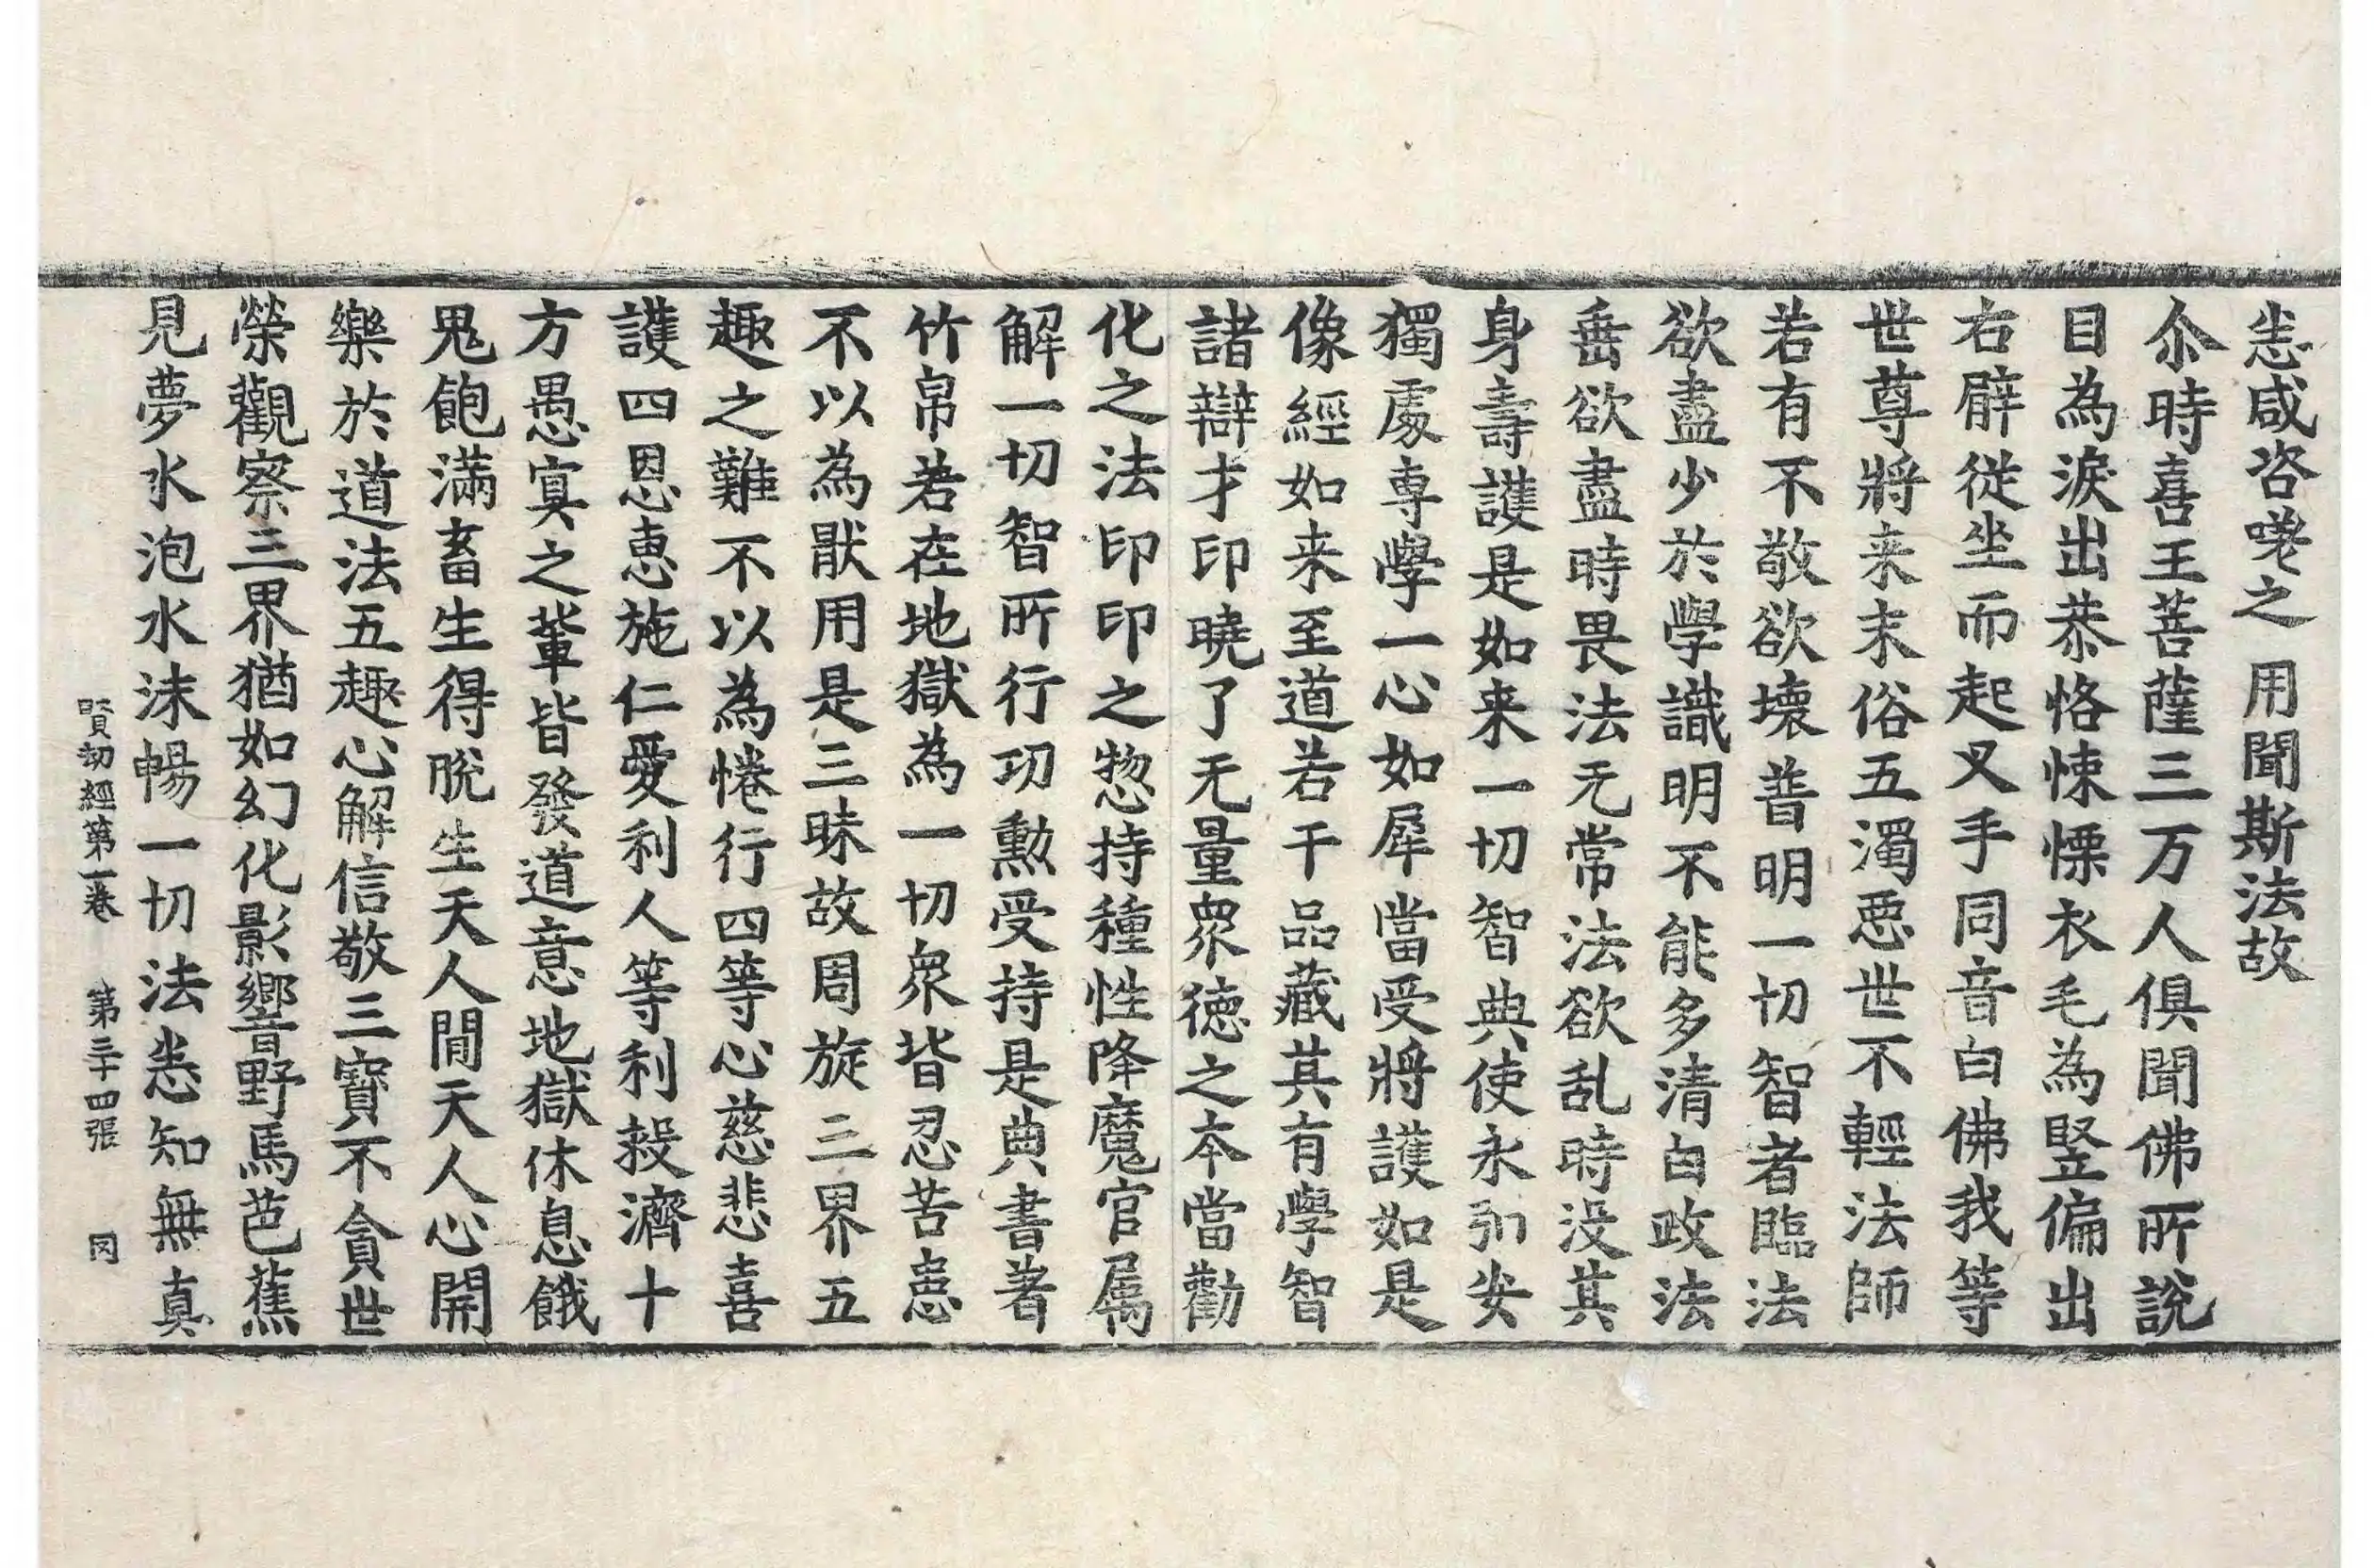 恙咸咨嗟之　用聞斯法故
尒時喜王菩薩三万人俱聞佛所說
目為淚出恭恪悚慄衣毛為竪偏出
右臂從坐而起叉手同音白佛我等
世尊將来末俗五濁惡世不輕法師
若有不敬欲壞普明一切智者臨法
欲盡少於學識明不能多清白政法
垂欲盡時畏法无常法欲乱時没其
身壽護是如来一切智典使永引安
獨處專學一心如犀當受將護如是
像經如来至道若干品藏其有學智
諸辯才印曉了无量衆徳之本當勸
化之法印印之惣持種性降魔官屬
解一切智所行行功勳受持是典書著
竹帛若在地獄為一切衆皆忍苦患
不以為猒用是三昧故周旋三界五
趣之難不以為惓行四等心慈悲喜
護四恩惠施仁愛利人等利救濟十
方愚冥之輩皆發道意地獄休息餓
鬼飽滿畜生得脫生天人間天人心開
樂於道法五趣心解信敬三寶不貪世
榮觀察三界猶如幻化影響野馬芭蕉
見夢水泡水沫暢一切法悉知無真
賢劫經第一卷　第三十四張　罔